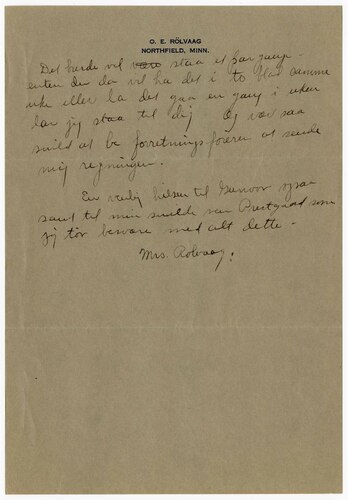 O. E. RÖLVAAG
NORTHFIELD, MINN.
Det burde vel være staa et par gange
enten du da vil ha det i to blad samme
uke eller la det gaa en gang i uken
lar jeg staa til dig. Og vær saa
snild at be forretningsføreren at sende
mig regningen.
En venlig hilsen til
samt til min snilde ven Prestgard som
jeg tør besvære med alt dette.
Mrs. Rölvaag.